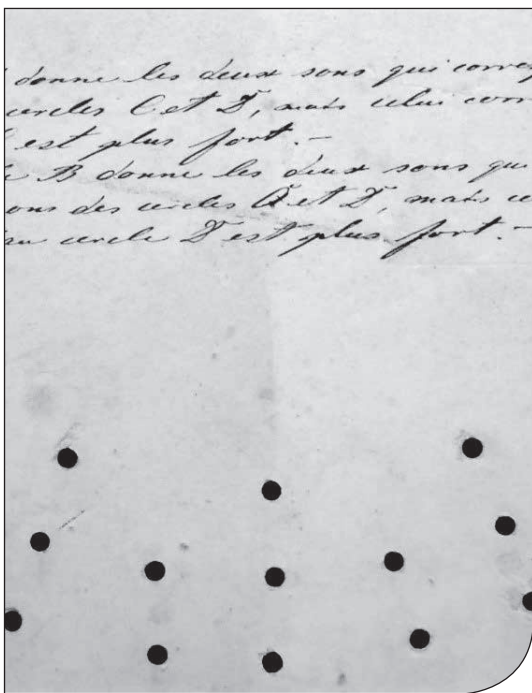 donne les deux sons qui corres
cercles C et D, mais celui corr
est plus fort. –
B donne les deux sons qui
ons des cercles A et D, mais ce
au cercle D est plus fort. –